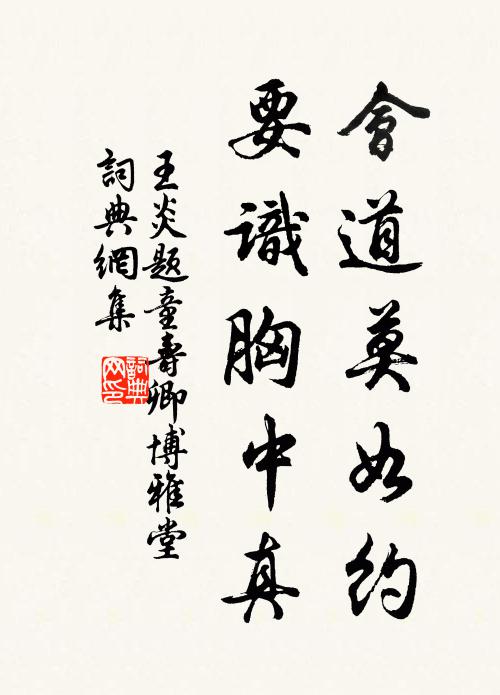 會道莫如約
要識胸中真
王炎題童壽卿博雅堂
詞典網集
詞典網印